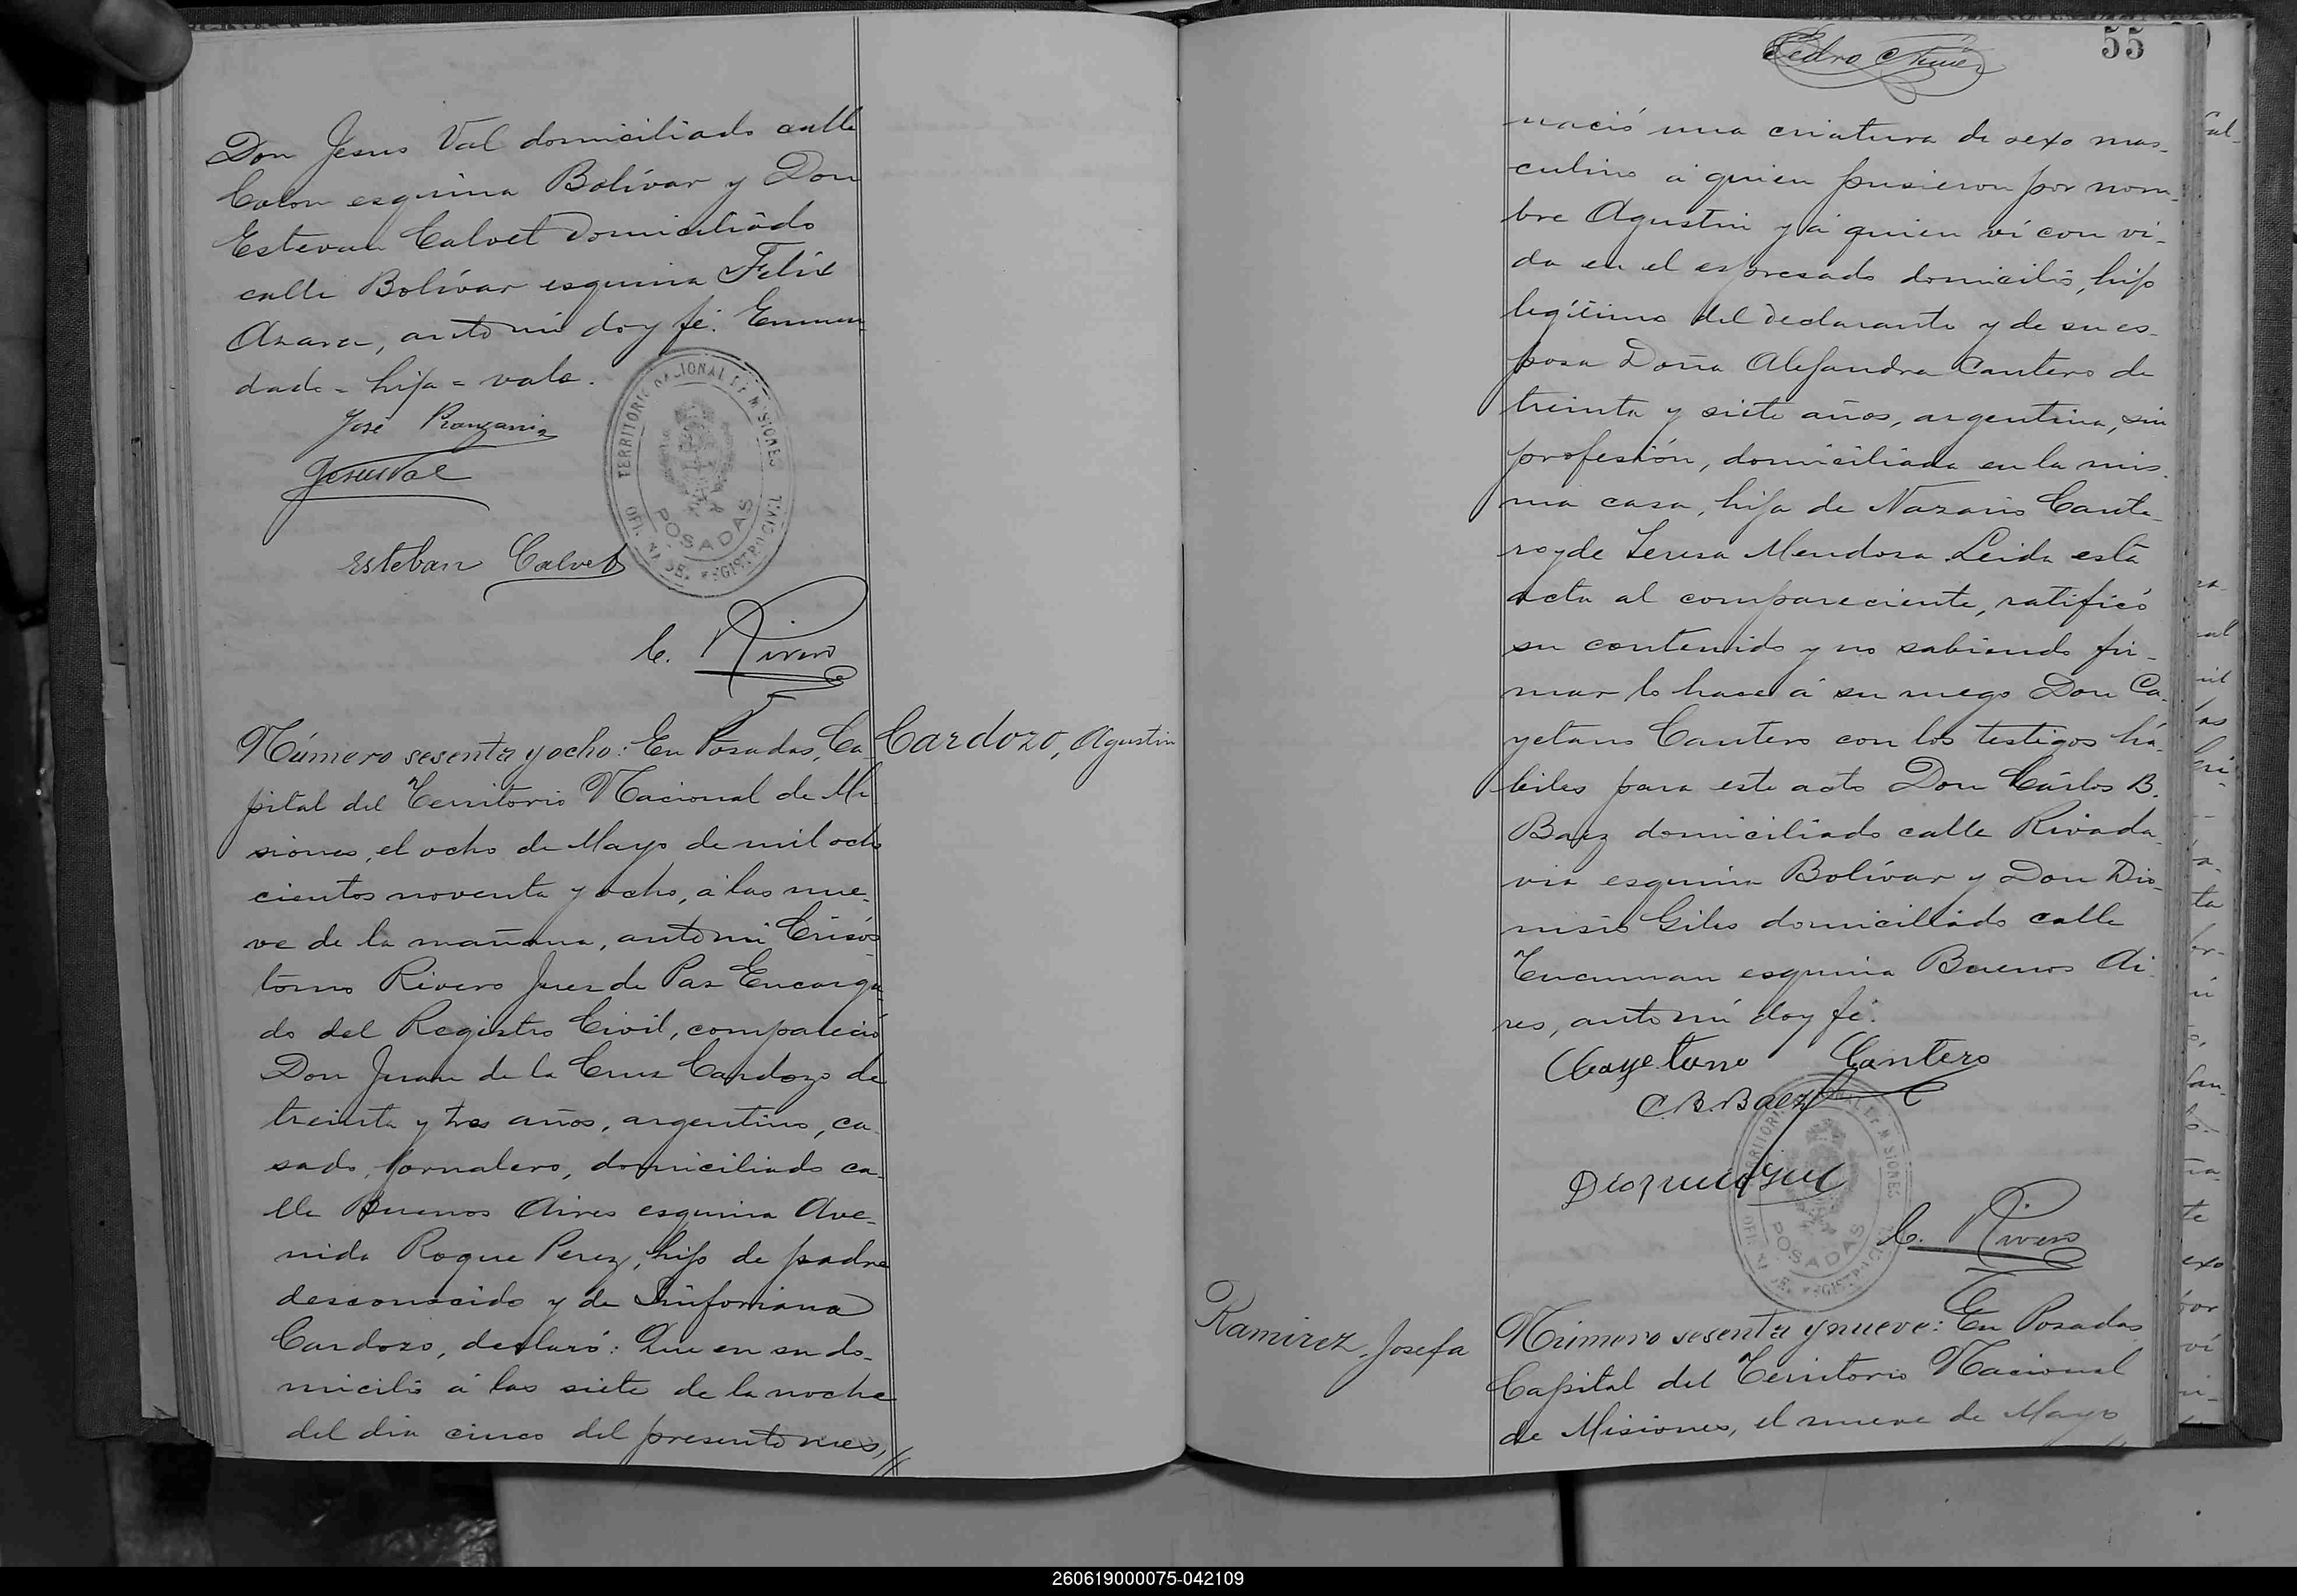 Don Jesus Val domiciliado calle
Colon esquina Bolívar y Don
Estevan Calvet domiciliado
calle Bolívar esquina Felix
Azara, ante mi doy fé. Enmen
dado = hija = vale.
José
Jesus Val
Esteban Calvet
TERRITORIO NACIONAL DE MISIONES
POSADAS
OFI. NA DEL REGISTRO CIVIL
C. Rivero
Número sesenta y ocho: En Posadas, Ca
Cardozo, Agustin
pital del Territorio Nacional de Mi
siones, el ocho de Mayo de mil ocho
cientos noventa y ocho, á las nue-
ve de la mañana, ante mi Crisós
tomo Rivero Juez de Paz Encarga
do del Registro Civil, compareció
Don Juan de la Cruz Cardozo de
treinta y tres años, argentino, ca
sado, jornalero, domiciliado ca-
lle Buenos Aires esquina Ave-
nida Roque Perez, hijo de padre
desconocido y de Sinforiana
Cardozo, declaró: Que en su do-
micilio á las siete de la noche
del dia cinco del presente mes,//
Pedro
55
nació una criatura de sexo mas-
culino á quien pusieron por nom-
bre Agustin y á quien ví con vi-
da en el espresado domicilio, hijo
legítimo del declarante y de su es-
posa Doña Alejandra Cantero de
treinta y siete años, argentina, sin
profesión, domiciliada en la mis
ma casa, hija de Nazario Cante-
ro y de Teresa Mendoza. Leida esta
acta al compareciente, ratificó
su contenido y no sabiendo fir-
mar lo hace á su ruego Don Ca-
yetano Cantero con los testigos há-
biles para este acto Don Cárlos B.
Baez domiciliado calle Rivada-
via esquina Bolívar y Don Dio-
nisio Giles domiciliado calle
Tucuman esquina Buenos Ai-
res, ante mí doy fé.
Cayetano Cantero
C. B. Baez
TERRITORIO NACIONAL DE MISIONES
POSADAS
C. Rivero
Ramirez, Josefa
Número sesenta y nueve: En Posadas
Capital del Territorio Nacional
de Misiones, el nueve de Mayo
260619000075-042109